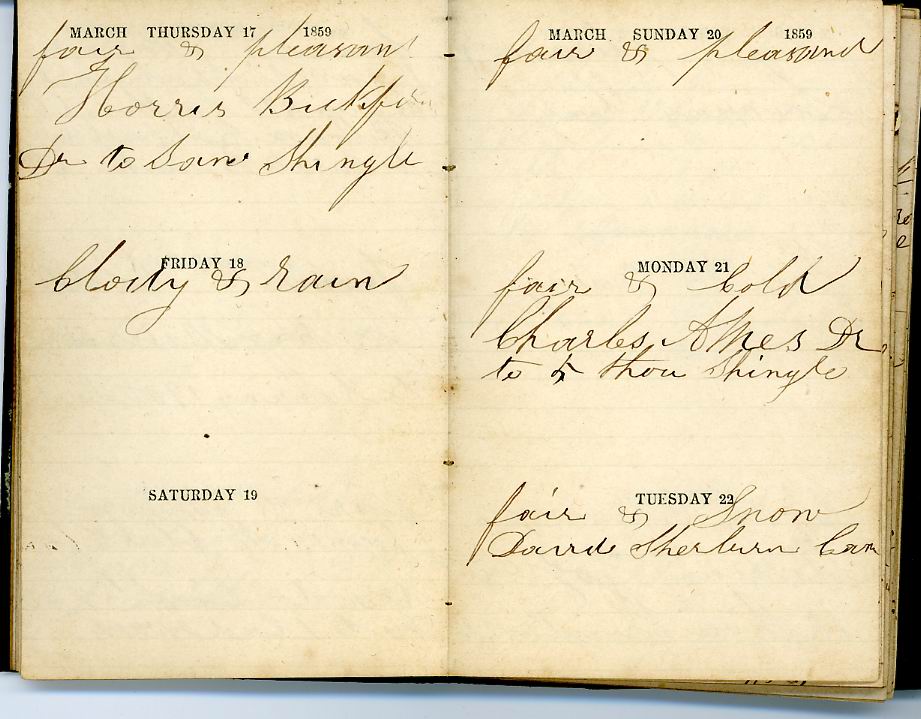 MARCH THURSDAY 17 1859
fair & pleasant
Horris Bickfor
Dr to Saw Shingle
FRIDAY 18
Clody & rain
SATURDAY 19
MARCH SUNDAY 20 1859
fair & pleasand
MONDAY 21
fair & Cold
Charles Ames Dr
to 5 thou Shingle
TUESDAY 22
fair & Snow
David Sherburn Cam